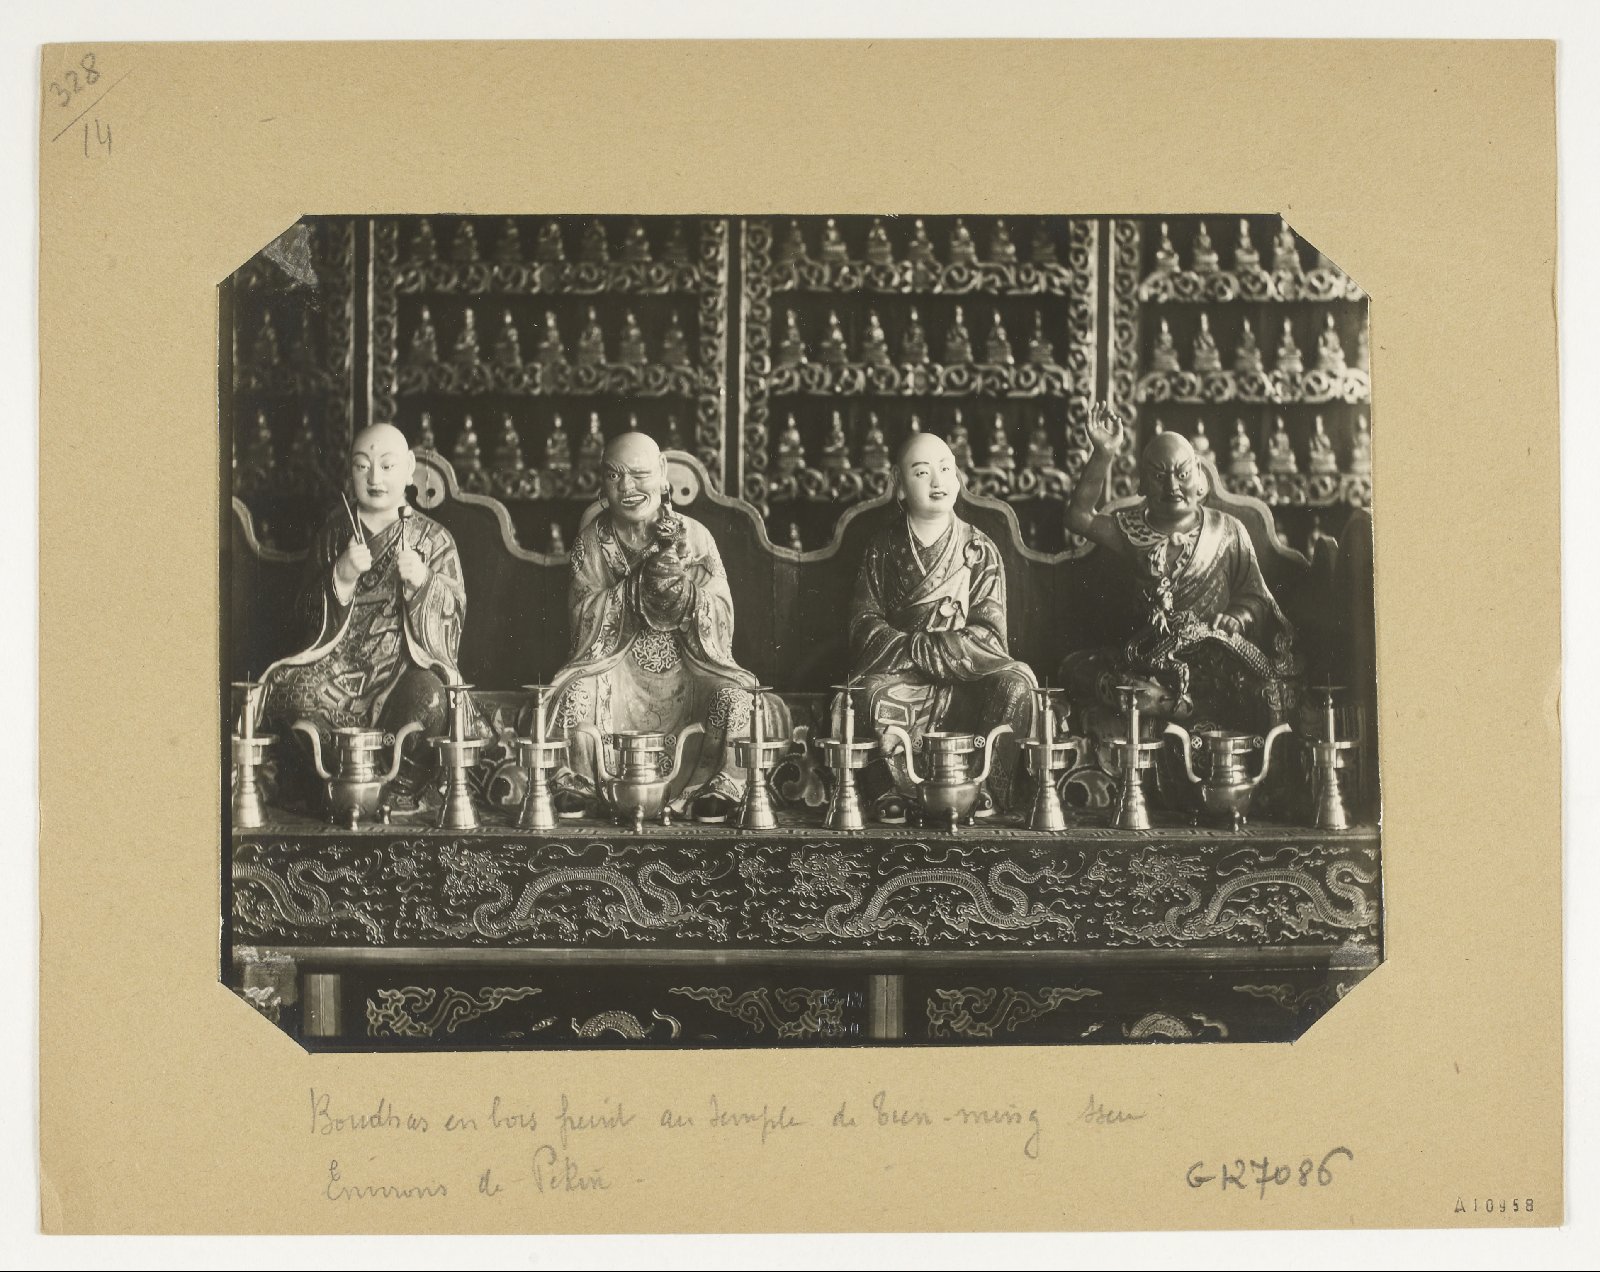 328
14
Boudhas en bois peint au temple de Tien-ming Sseu
Environs de Pekin -
GK7086
A10958